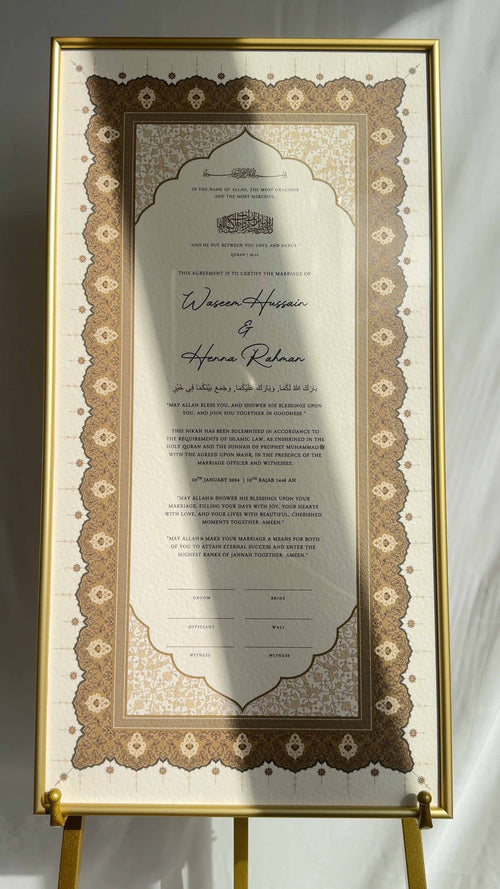 IN THE NAME OF ALLAH, THE MOST GRACIOUS
AND THE MOST MERCIFUL.
"AND HE PUT BETWEEN YOU LOVE AND MERCY."
QURAN |
THIS AGREEMENT IS TO CERTIFY THE MARRIAGE OF
Waseem Hussain
&
Henna Rahman
بَارَكَ اللهُ لَكُمَا، وَبَارَكَ عَلَيْكُمَا، وَجَمَعَ بَيْنَكُمَا فِي خَيْرٍ
"MAY ALLAH BLESS YOU, AND SHOWER HIS BLESSINGS UPON
YOU, AND JOIN YOU TOGETHER IN GOODNESS."
THIS NIKAH HAS BEEN SOLEMNISED IN ACCORDANCE TO
THE REQUIREMENTS OF ISLAMIC LAW, AS ENSHRINED IN THE
HOLY QURAN AND THE SUNNAH OF PROPHET MUHAMMAD ﷺ
WITH THE AGREED UPON MAHR, IN THE PRESENCE OF THE
MARRIAGE OFFICER AND WITNESSES.
JANUARY 2024 | RAJAB 1446 AH
"MAY ALLAH SHOWER HIS BLESSINGS UPON YOUR
MARRIAGE, FILLING YOUR DAYS WITH JOY, YOUR HEARTS
WITH LOVE, AND YOUR LIVES WITH BEAUTIFUL, CHERISHED
MOMENTS TOGETHER. AMEEN."
"MAY ALLAH MAKE YOUR MARRIAGE A MEANS FOR BOTH
OF YOU TO ATTAIN ETERNAL SUCCESS AND ENTER THE
HIGHEST RANKS OF JANNAH TOGETHER. AMEEN."
GROOM BRIDE
OFFICIANT WALI
WITNESS WITNESS